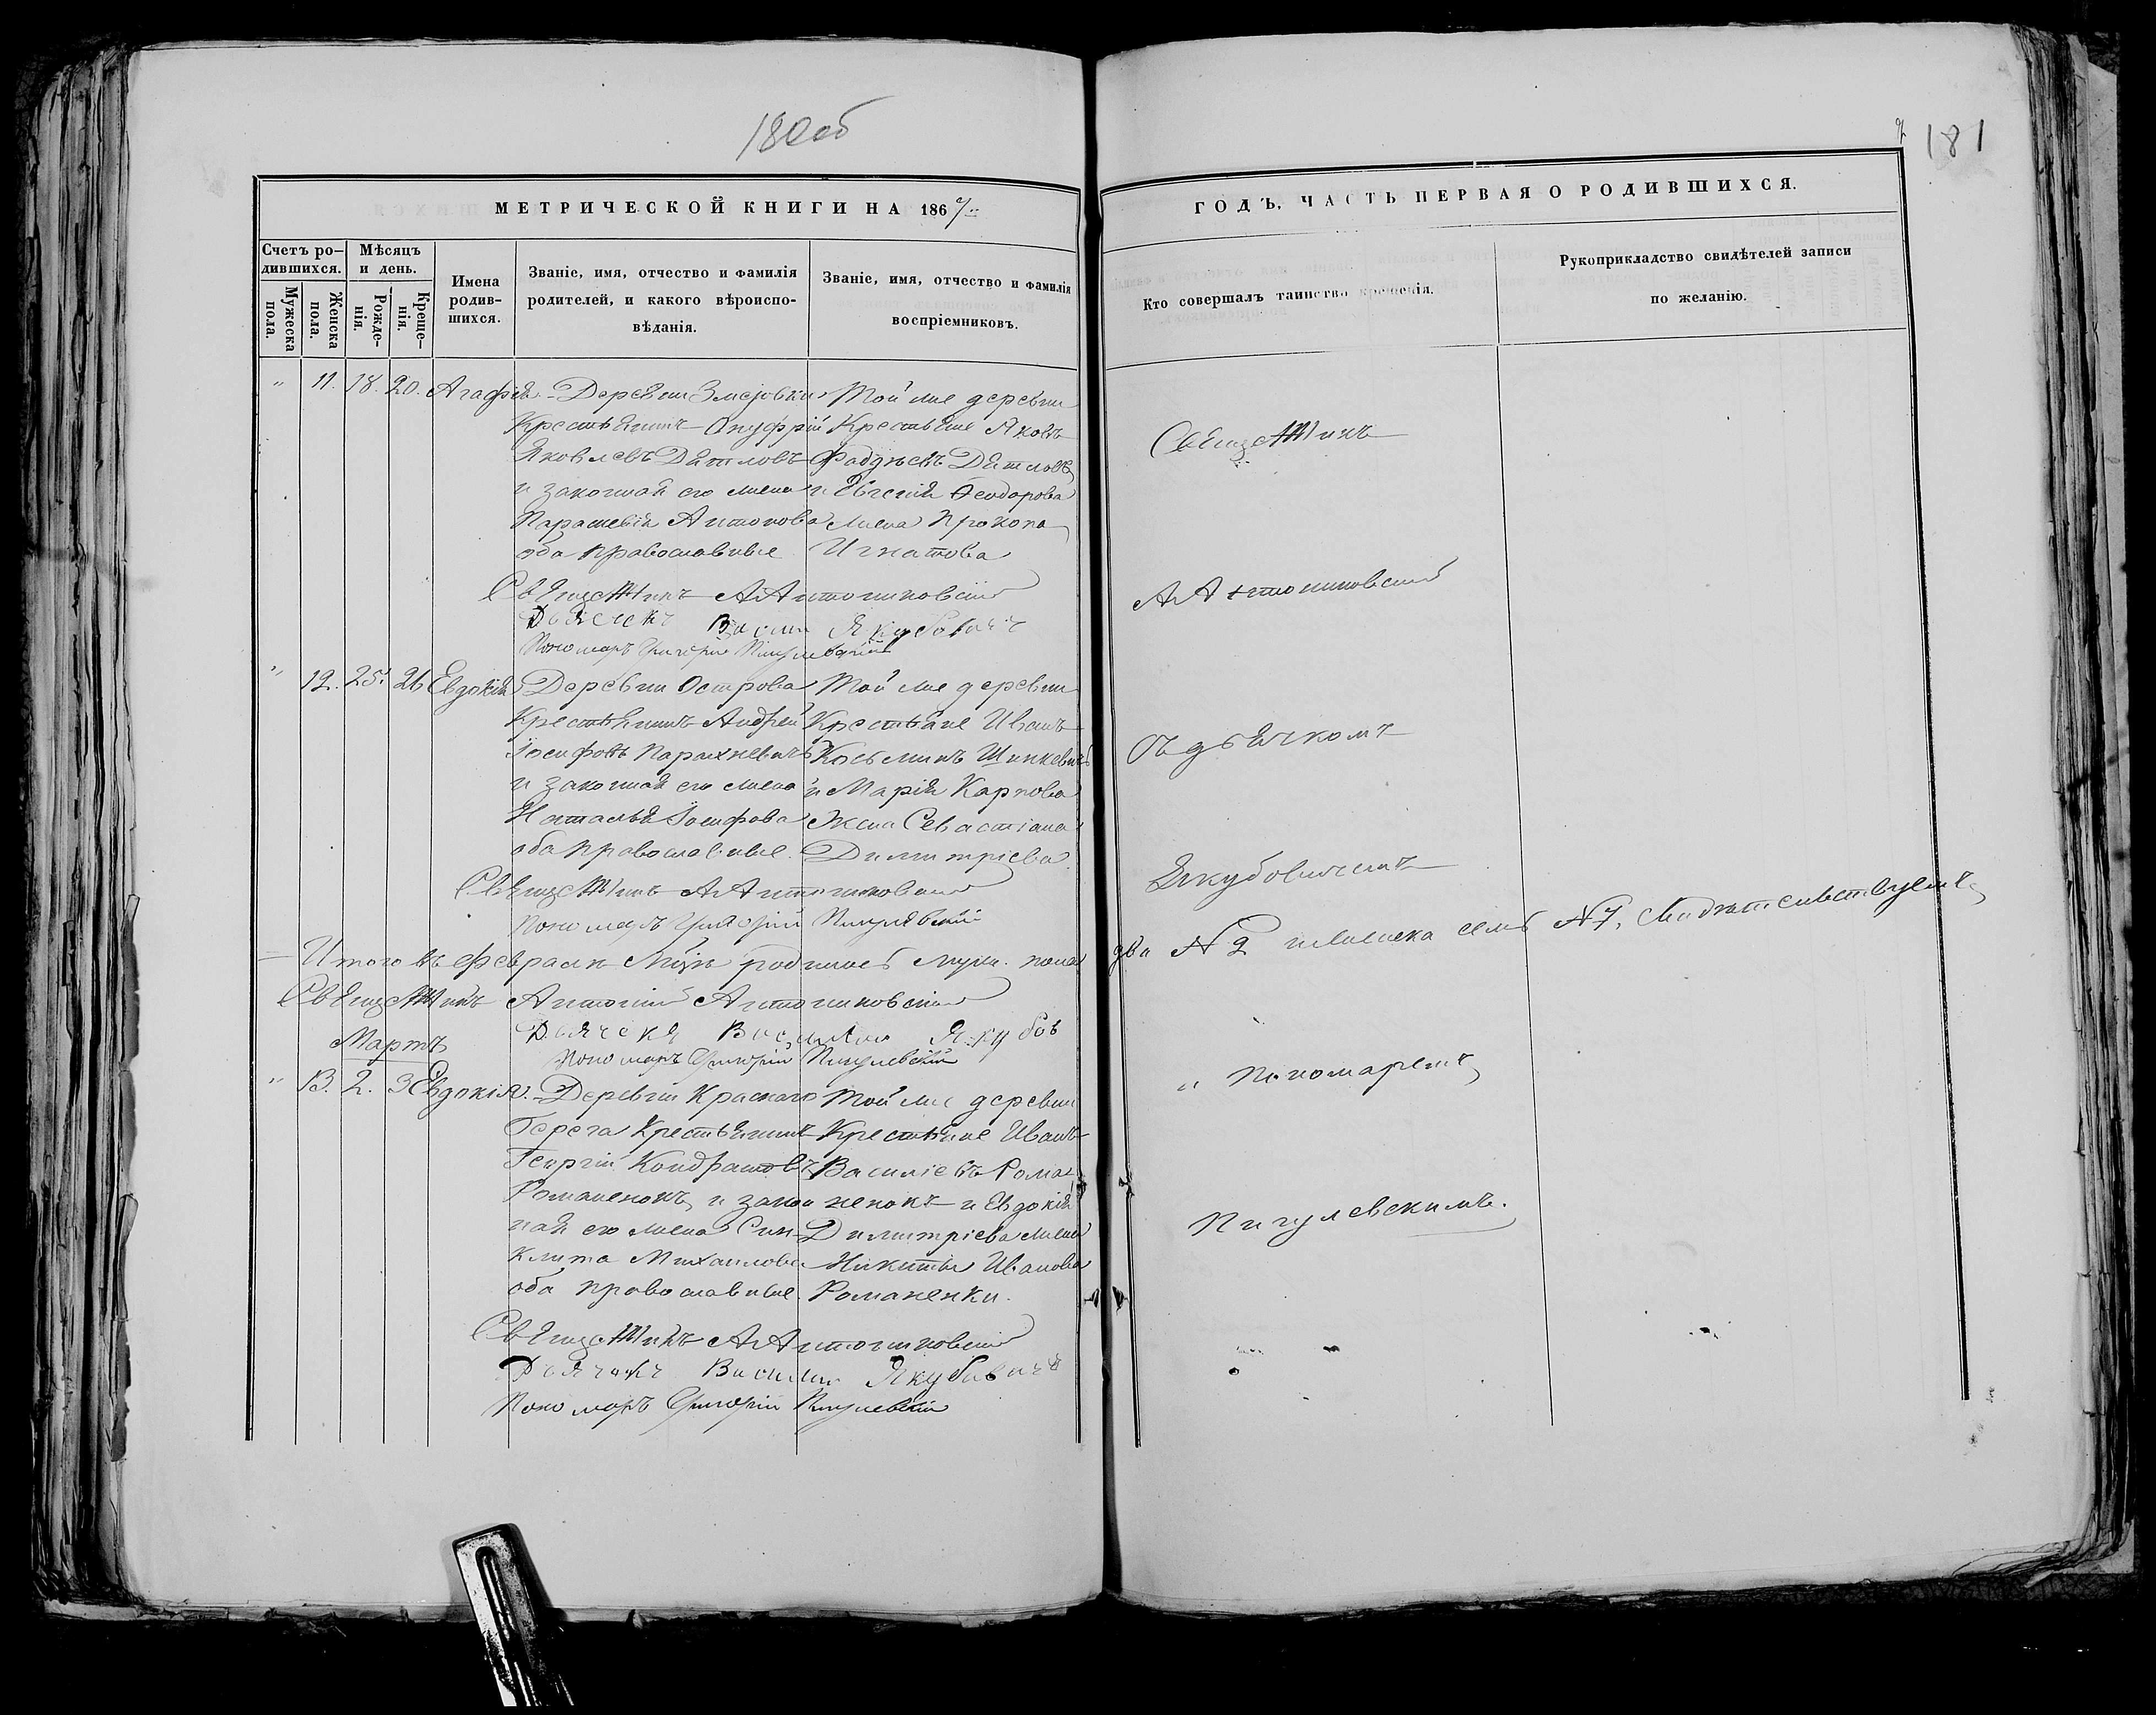 180 об
181
МЕТРИЧЕСКОЙ КНИГИ НА 186
ГОДЪ, ЧАСТЬ ПЕРВАЯ О РОДИВШИХСЯ.
Счетъ ро-
дившихся.
Мужеска
пола.
Женска
пола.
Мѣсяцъ
и день.
Рожде-
нія.
Креще-
нія.
Имена
родив-
шихся.
Званіе, имя, отчество и фамилія
родителей, и какого вѣроиспо-
вѣданія.
Званіе, имя, отчество и фамилія
воспріемниковъ.
Кто совершалъ таинство крещенія.
Рукоприкладство свидѣтелей записи
по желанію.
" 11. 18. 20. Агафія
Деревни
Крестьянинъ Онуфрій
Яковлевъ Дятловъ
и законная его жена
Параскевія Антонова
оба православные
Той же деревни
Крестьяне Яковъ
Фаддѣевъ Дятловъ
и Евгенія Ѳеодорова
жена Прокопа
Игнатова
Священникъ А Антониковскій
Дьячекъ Васили Якубовичъ
Пономаръ Григорій Пигулевскій
" 12. 25. 26 Евдокія
Деревни Острова
Крестьянинъ Андрей
Іосифовъ Парахневичъ
и законная его жена
Наталья Іосифова
оба православные.
Той же деревни
Крестьяне Иванъ
Косьминъ Шинкевичъ
и Марія Карпова
Жена Севастіана
Димитріева
Священникъ А Антониковскій
Пономаръ Григорій Пигулевскій
Итого въ Февралѣ М-цѣ родилось муж. пола два № 2 женска семь № 7. Свидѣтельствуемъ
Священникъ Антоній Антониковскій
Дьячекъ Василій Якубов
Пономаръ Григорій Пигулевскій
Мартъ
" 13. 2. 3 Евдокія.
Деревни Краснаго
Берега Крестьянинъ
Георгій Кондратовъ
Романенокъ и закон
ная его жена Син-
клита Михаилова
оба православные.
Той же деревни
Крестьяне Иванъ
Василіевъ Рома
ненокъ и Евдокія
Димитріева жена
Никиты Иванова
Романенки.
Священникъ А Антониковскій
Дьячекъ Васили Якубовичъ
Пономаръ Григорій Пигулевскій
Священникъ
А Антониковскій
съ дьячкомъ
Якубовичемъ
и Пономаремъ
Пигулевскимъ.